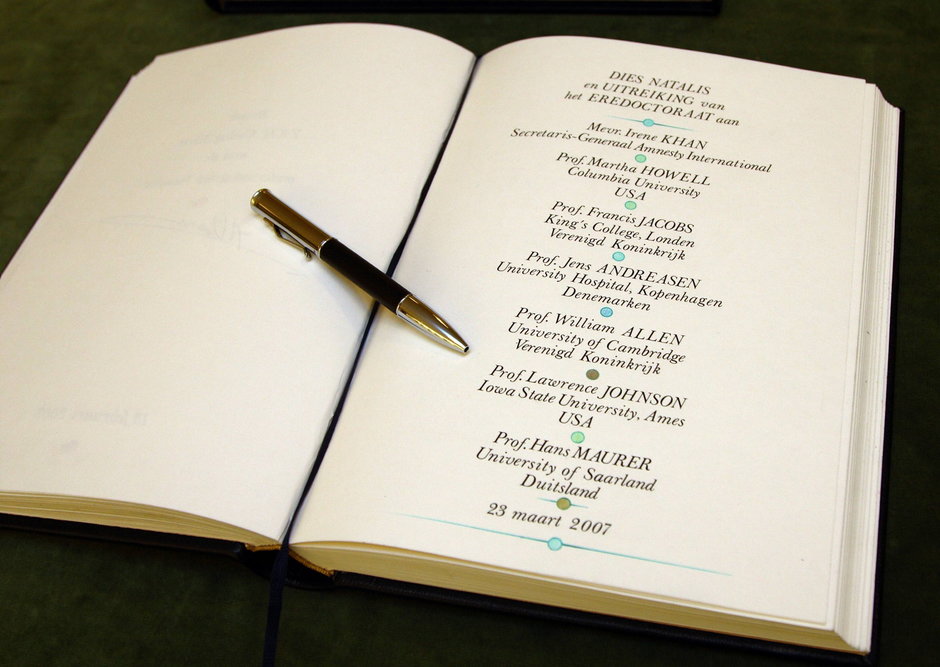 DIES NATALIS
en UITREIKING van
het EREDOCTORAAT aan
Mevr. Irene KHAN
Secretaris-Generaal Amnesty International
Prof. Martha HOWELL
Columbia University
USA
Prof. Francis JACOBS
King's College, Londen
Verenigd Koninkrijk
Prof. Jens ANDREASEN
University Hospital, Kopenhagen
Denemarken
Prof. William ALLEN
University of Cambridge
Verenigd Koninkrijk
Prof. Lawrence JOHNSON
Iowa State University, Ames
USA
Prof. Hans MAURER
University of Saarland
Duitsland
23 maart 2007